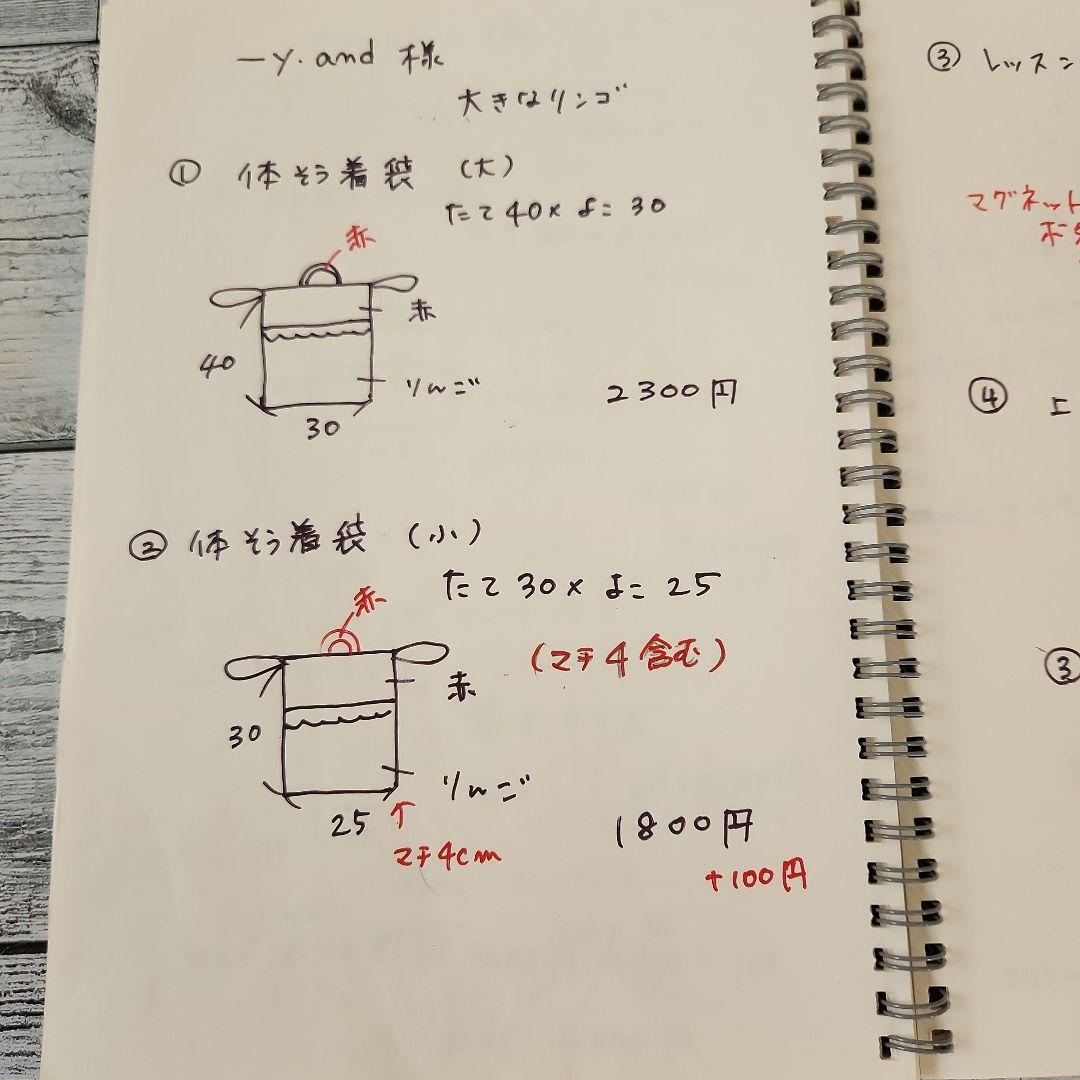 ーy.and 様
大きなリンゴ
① 体そう着袋 (大)
たて40×よこ30
赤
赤
40
りんご
30
2300円
② 体そう着袋 (小)
たて30×よこ25
赤
(マチ4含む)
赤
30
りんご
25
↑
マチ4cm
1800円
+100円
③ レッスン
マグネット
ボタ
④ 上
③